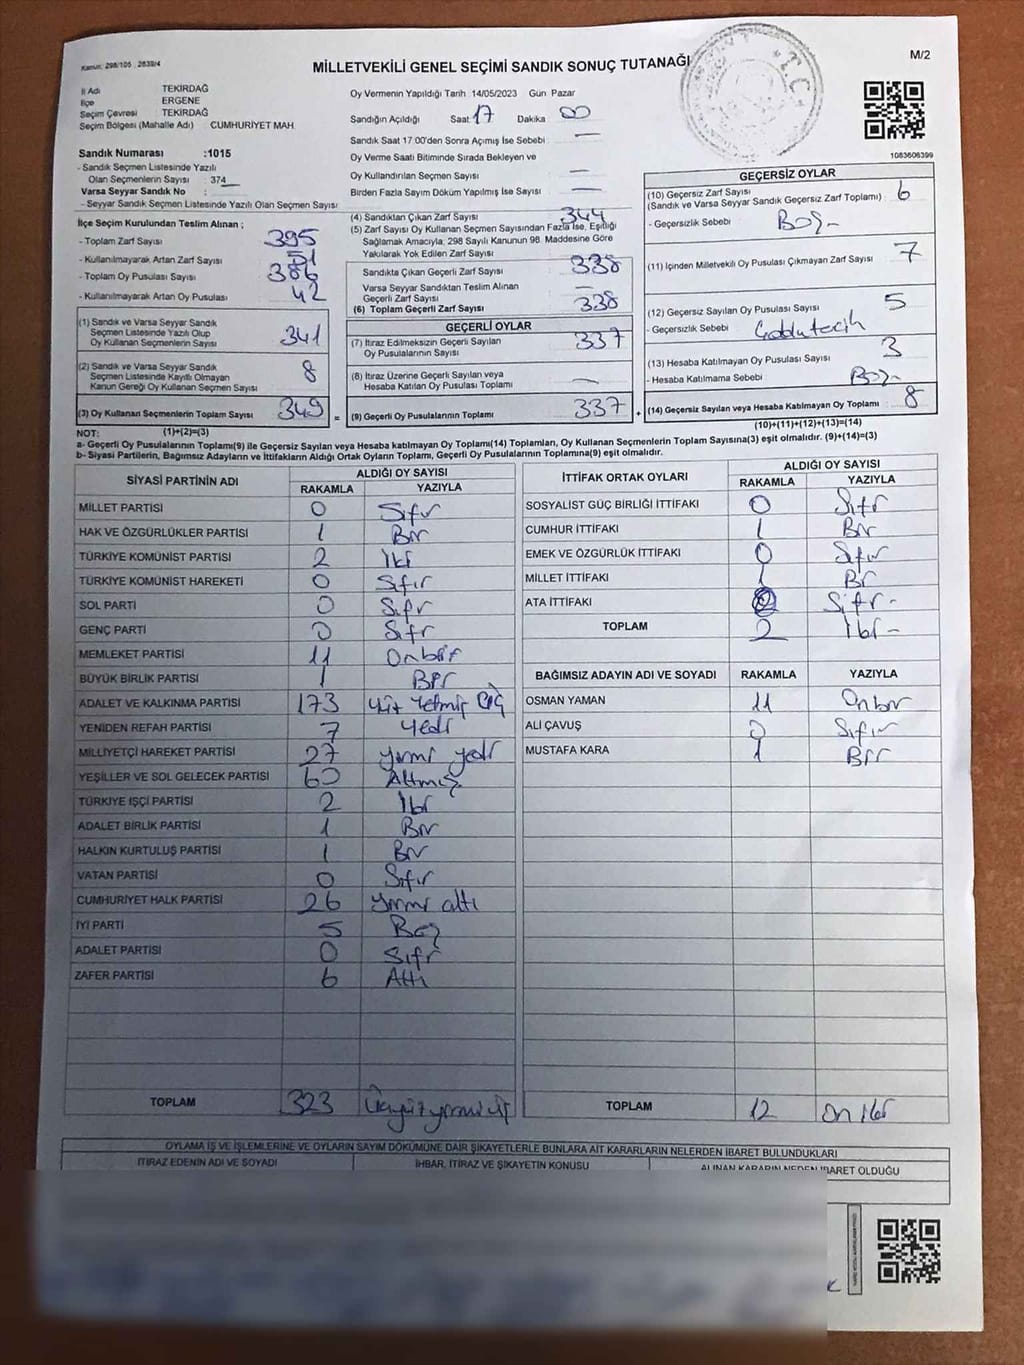 Kanun: 298/105 : 2839/4
MİLLETVEKİLİ GENEL SEÇİMİ SANDIK SONUÇ TUTANAĞI
M/2
T.C.
İl Adı TEKİRDAĞ
İlçe ERGENE
Seçim Çevresi TEKİRDAĞ
Seçim Bölgesi (Mahalle Adı) CUMHURİYET MAH.
Sandık Numarası :1015
- Sandık Seçmen Listesinde Yazılı
Olan Seçmenlerin Sayısı : 374
Varsa Seyyar Sandık No :
- Seyyar Sandık Seçmen Listesinde Yazılı Olan Seçmen Sayısı:
Oy Vermenin Yapıldığı Tarih 14/05/2023 Gün Pazar
Sandığın Açıldığı Saat 17 Dakika 00
Sandık Saat 17.00'den Sonra Açımış İse Sebebi : —
Oy Verme Saati Bitiminde Sırada Bekleyen ve
Oy Kullandırılan Seçmen Sayısı —
Birden Fazla Sayım Döküm Yapılmış İse Sayısı —
1083606399
İlçe Seçim Kurulundan Teslim Alınan ;
- Toplam Zarf Sayısı 395
- Kullanılmayarak Artan Zarf Sayısı 51
- Toplam Oy Pusulası Sayısı 386
- Kullanılmayarak Artan Oy Pusulası 42
(1) Sandık ve Varsa Seyyar Sandık
Seçmen Listesinde Yazılı Olup
Oy Kullanan Seçmenlerin Sayısı 341
(2) Sandık ve Varsa Seyyar Sandık
Seçmen Listesinde Kayıtlı Olmayan
Kanun Gereği Oy Kullanan Seçmen Sayısı 8
(3) Oy Kullanan Seçmenlerin Toplam Sayısı 349 =
(1)+(2)=(3)
(4) Sandıktan Çıkan Zarf Sayısı 344
(5) Zarf Sayısı Oy Kullanan Seçmen Sayısından Fazla İse, Eşitliği
Sağlamak Amacıyla, 298 Sayılı Kanunun 98. Maddesine Göre
Yakılarak Yok Edilen Zarf Sayısı
Sandıkta Çıkan Geçerli Zarf Sayısı 338
Varsa Seyyar Sandıktan Teslim Alınan
Geçerli Zarf Sayısı —
(6) Toplam Geçerli Zarf Sayısı 338
GEÇERLİ OYLAR
(7) İtiraz Edilmeksizin Geçerli Sayılan
Oy Pusulalarının Sayısı 337
(8) İtiraz Üzerine Geçerli Sayılan veya
Hesaba Katılan Oy Pusulası Toplamı —
(9) Geçerli Oy Pusulalarının Toplamı 337 +
GEÇERSİZ OYLAR
(10) Geçersiz Zarf Sayısı
(Sandık ve Varsa Seyyar Sandık Geçersiz Zarf Toplamı) : 6
- Geçersizlik Sebebi Boş-
(11) İçinden Milletvekili Oy Pusulası Çıkmayan Zarf Sayısı 7
(12) Geçersiz Sayılan Oy Pusulası Sayısı 5
- Geçersizlik Sebebi
(13) Hesaba Katılmayan Oy Pusulası Sayısı 3
- Hesaba Katılmama Sebebi Boş-
(14) Geçersiz Sayılan veya Hesaba Katılmayan Oy Toplamı 8
(10)+(11)+(12)+(13)=(14)
NOT:
a- Geçerli Oy Pusulalarının Toplamı(9) ile Geçersiz Sayılan veya Hesaba katılmayan Oy Toplamı(14) Toplamları, Oy Kullanan Seçmenlerin Toplam Sayısına(3) eşit olmalıdır. (9)+(14)=(3)
b- Siyasi Partilerin, Bağımsız Adayların ve İttifakların Aldığı Ortak Oyların Toplamı, Geçerli Oy Pusulalarının Toplamına(9) eşit olmalıdır.
SİYASİ PARTİNİN ADI ALDIĞI OY SAYISI
RAKAMLA YAZIYLA
MİLLET PARTİSİ 0 Sıfır
HAK VE ÖZGÜRLÜKLER PARTİSİ 1 Bir
TÜRKİYE KOMÜNİST PARTİSİ 2 İki
TÜRKİYE KOMÜNİST HAREKETİ 0 Sıfır
SOL PARTİ 0 Sıfır
GENÇ PARTİ 0 Sıfır
MEMLEKET PARTİSİ 11 Onbir
BÜYÜK BİRLİK PARTİSİ 1 Bir
ADALET VE KALKINMA PARTİSİ 173 Yüz Yetmiş Üç
YENİDEN REFAH PARTİSİ 7 Yedi
MİLLİYETÇİ HAREKET PARTİSİ 27 yirmi yedi
YEŞİLLER VE SOL GELECEK PARTİSİ 60 Altmış
TÜRKİYE İŞÇİ PARTİSİ 2 İki
ADALET BİRLİK PARTİSİ 1 Bir
HALKIN KURTULUŞ PARTİSİ 1 Bir
VATAN PARTİSİ 0 Sıfır
CUMHURİYET HALK PARTİSİ 26 yirmi altı
İYİ PARTİ 5 Beş
ADALET PARTİSİ 0 Sıfır
ZAFER PARTİSİ 6 Altı
TOPLAM 323 Üçyüzyirmi üç
İTTİFAK ORTAK OYLARI ALDIĞI OY SAYISI
RAKAMLA YAZIYLA
SOSYALİST GÜÇ BİRLİĞİ İTTİFAKI 0 Sıfır
CUMHUR İTTİFAKI 1 Bir
EMEK VE ÖZGÜRLÜK İTTİFAKI 0 Sıfır
MİLLET İTTİFAKI 1 Bir
ATA İTTİFAKI 0 Sıfır-
TOPLAM 2 İki-
BAĞIMSIZ ADAYIN ADI VE SOYADI RAKAMLA YAZIYLA
OSMAN YAMAN 11 Onbir
ALİ ÇAVUŞ 0 Sıfır
MUSTAFA KARA 1 Bir
TOPLAM 12 On iki
OYLAMA İŞ VE İŞLEMLERİNE VE OYLARIN SAYIM DÖKÜMÜNE DAİR ŞİKAYETLERLE BUNLARA AİT KARARLARIN NELERDEN İBARET BULUNDUKLARI
İTİRAZ EDENİN ADI VE SOYADI İHBAR, İTİRAZ VE ŞİKAYETİN KONUSU ALINAN KARARIN NEDEN İBARET OLDUĞU